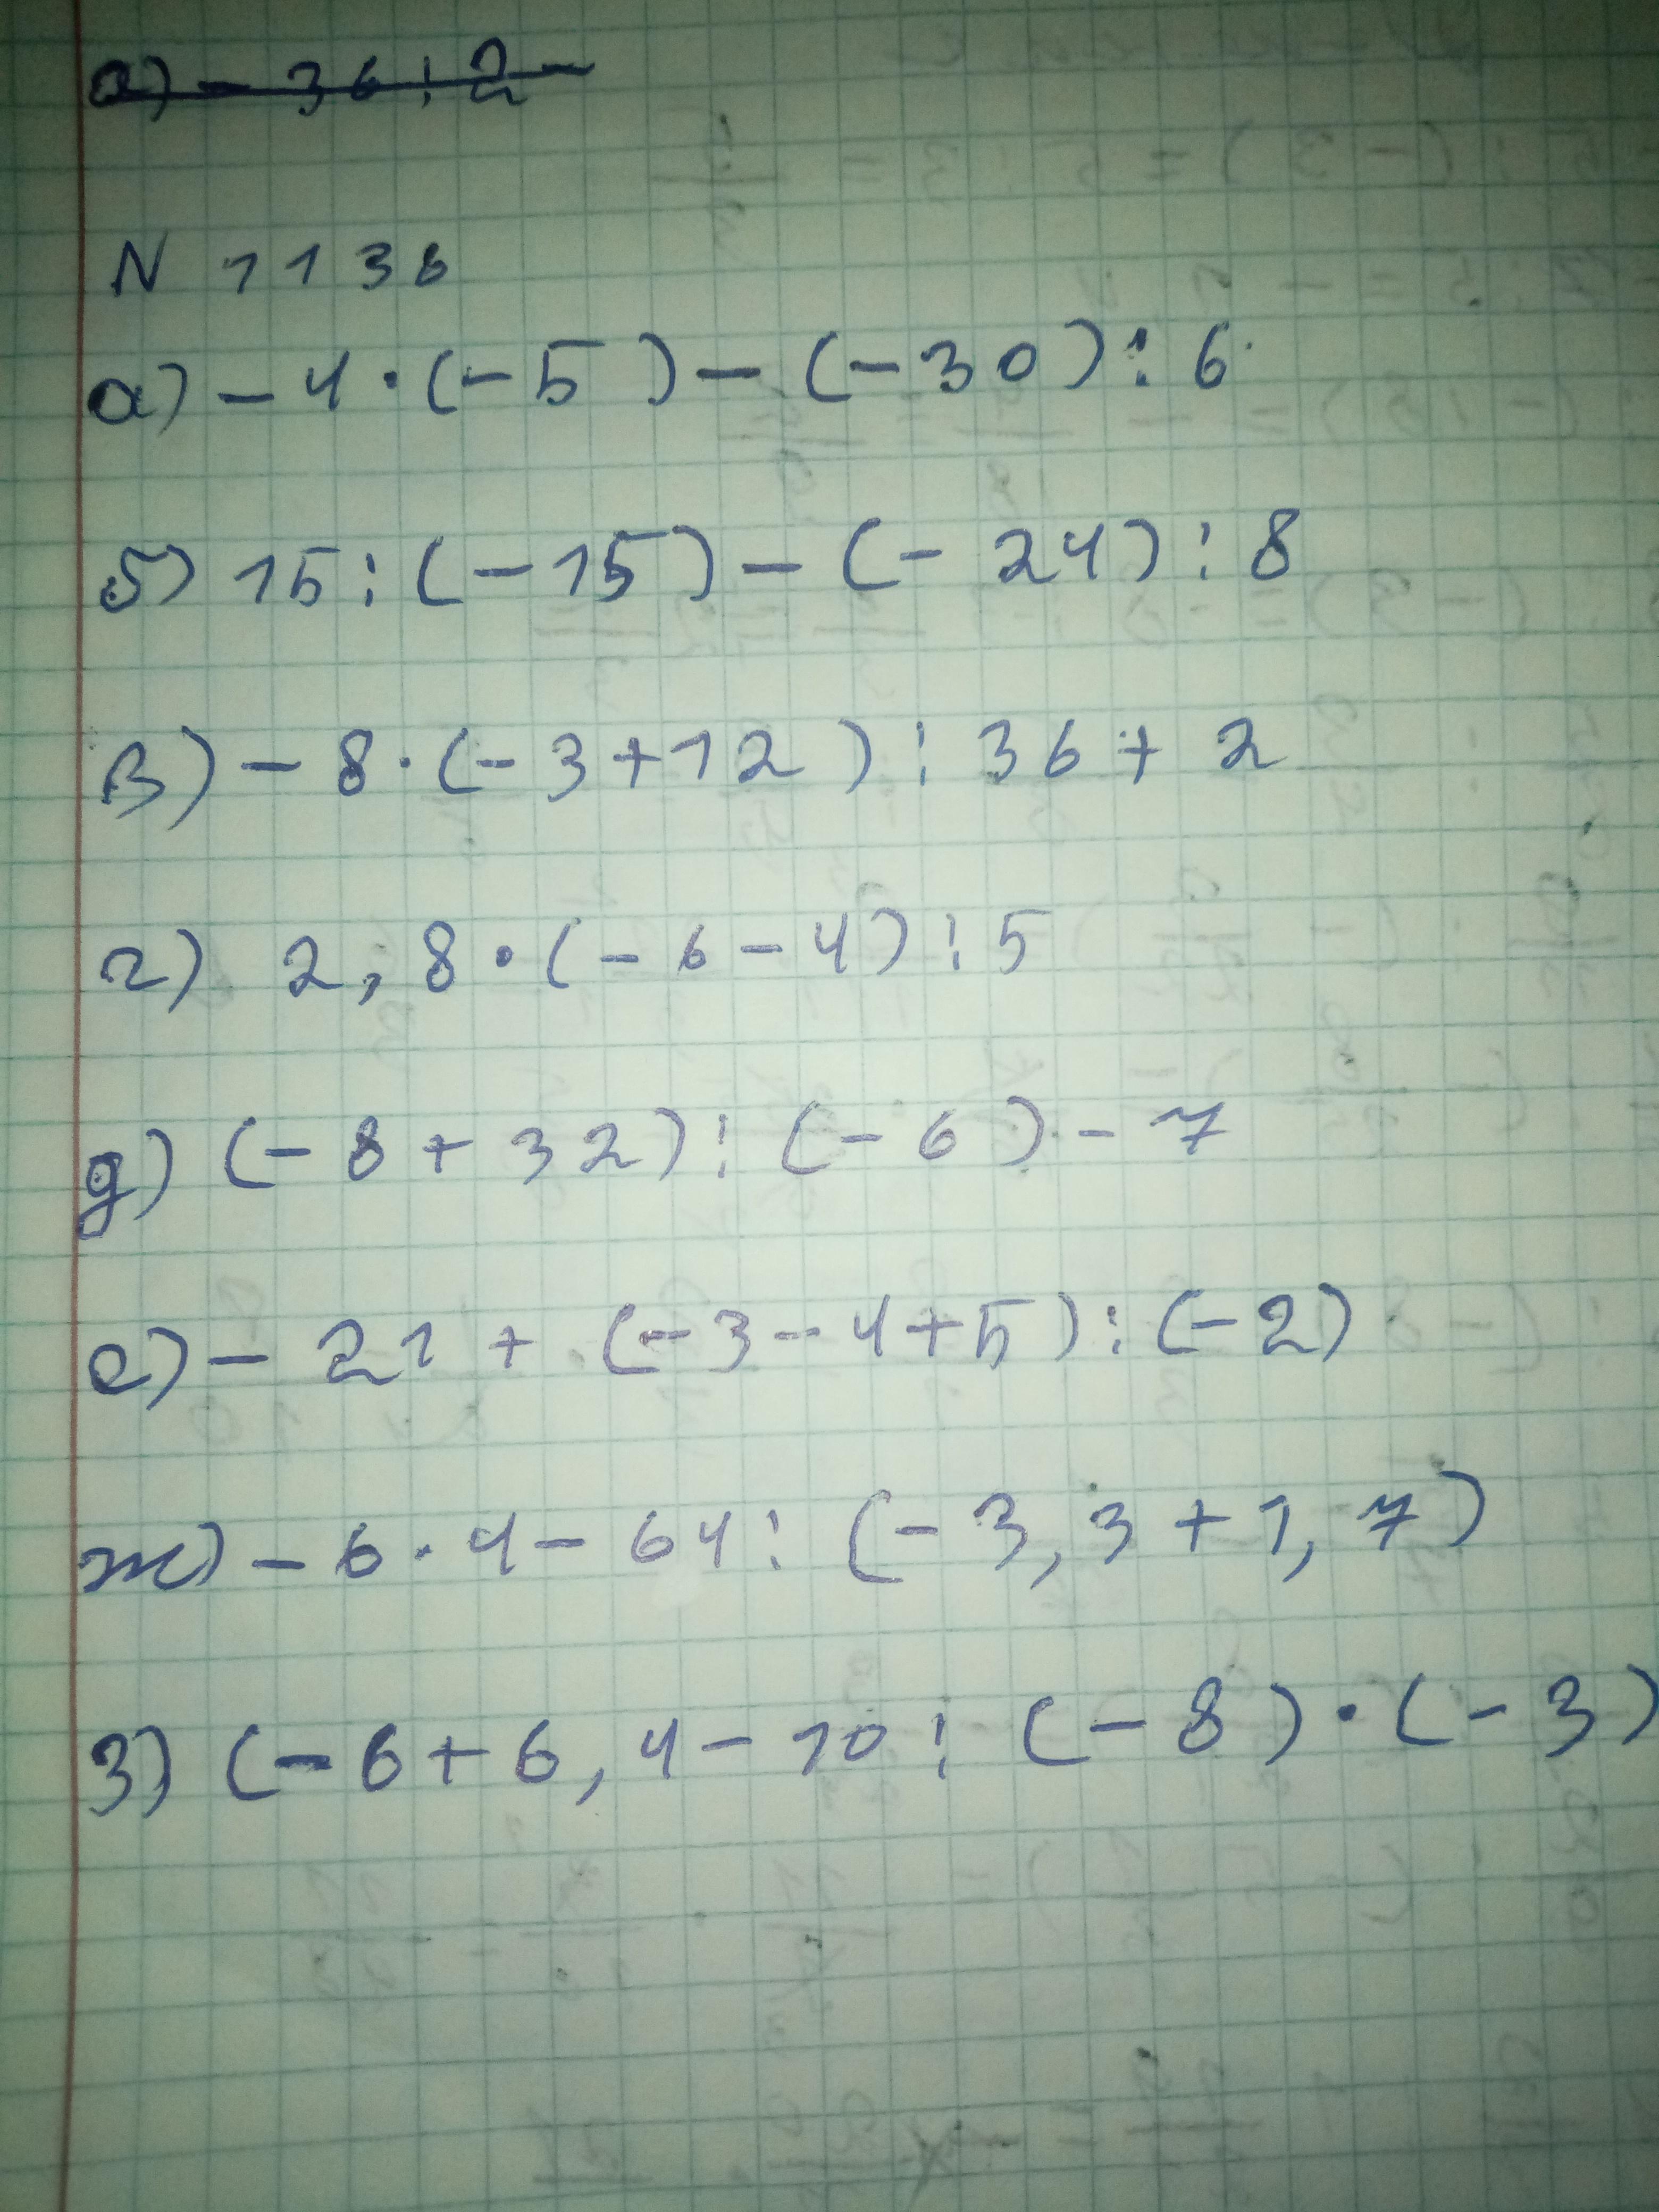 а) - 36 : 2 -
N 1136
а) - 4 · (-5) - (-30) : 6
б) 15 : (-15) - (- 24) : 8
в) - 8 · (- 3 + 12) : 36 + 2
г) 2,8 · (- 6 - 4) : 5
д) (- 8 + 32) : (- 6) - 7
е) - 21 + (-3 - 4 + 5) : (-2)
ж) - 6 · 4 - 64 : (- 3,3 + 1,7)
з) (- 6 + 6,4 - 10 : (- 8) · (- 3)